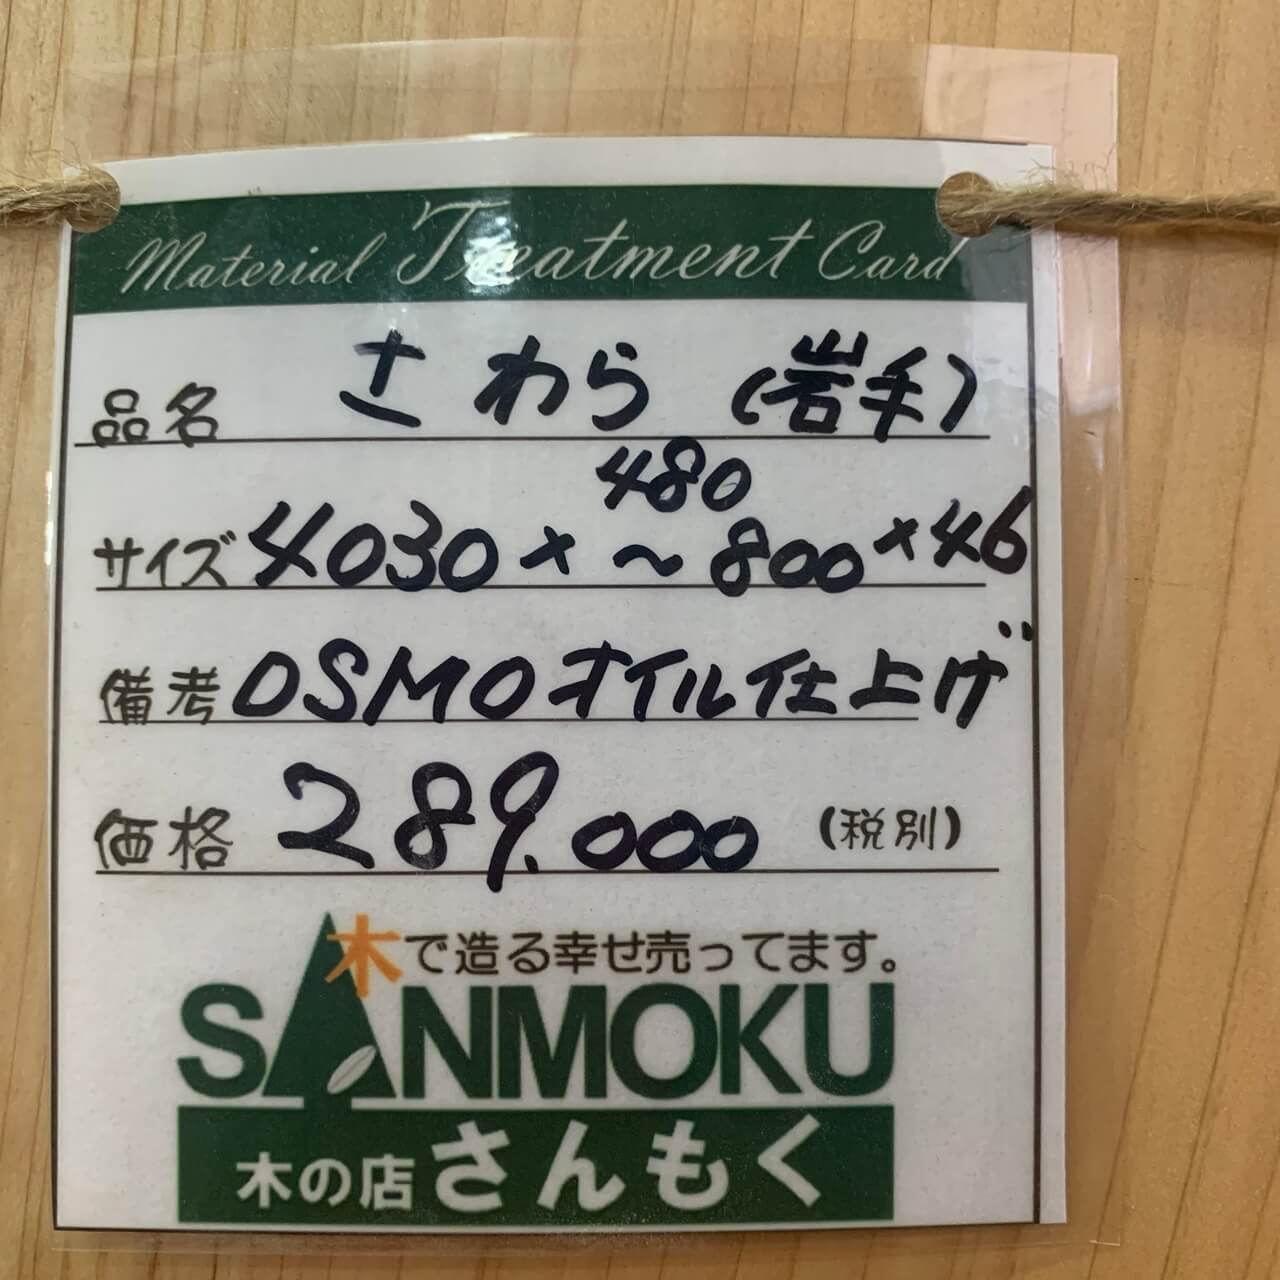 Material Treatment Card
品名 さわら (岩手)
480
サイズ 4030 × ~800 × 46
備考 OSMOオイル仕上げ
価格 289.000 (税別)
木で造る幸せ売ってます。
SANMOKU
木の店 さんもく